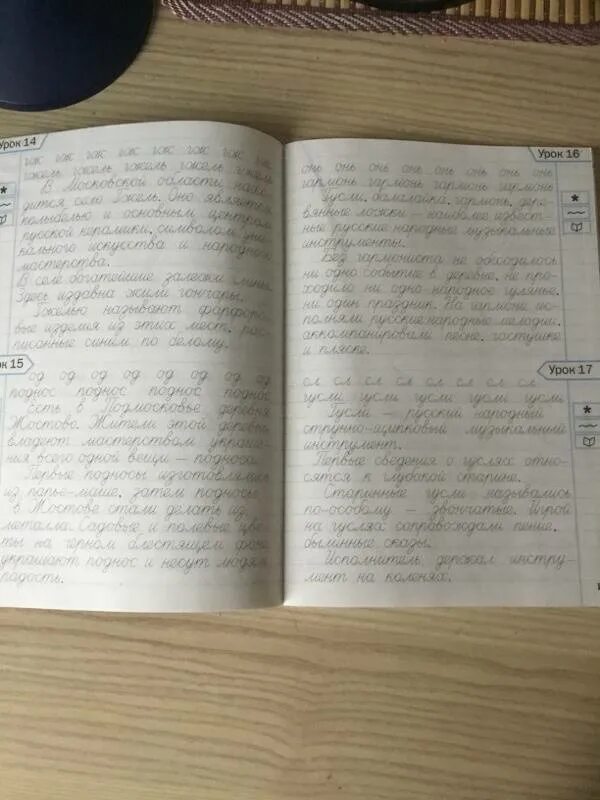 Урок 14
гж гж гж гж гж гж гж гж
гжель гжель гжель гжель гжель
В Московской области нахо-
дится село Гжель. Оно является
колыбелью и основным центром
русской керамики, символом уни-
кального искусства и народного
мастерства.
В селе богатейшие залежи глины.
Здесь издавна жили гончары.
Гжелью называют фарфоро-
вые изделия из этих мест, рас-
писанные синим по белому.
ок 15
од од од од од од од од
поднос поднос поднос поднос
Есть в Подмосковье деревня
Жостово. Жители этой деревни
владеют мастерством украше-
ния всего одной вещи – подноса.
Первые подносы изготовлялись
из папье-маше, затем подносы
в Жостове стали делать из
металла. Садовые и полевые цве-
ты на чёрном блестящем фоне
украшают поднос и несут людям
радость.
Урок 16
онь онь онь онь онь онь онь онь
гармонь гармонь гармонь гармонь
Гусли, балалайка, гармонь, дере-
вянные ложки – наиболее извест-
ные русские народные музыкальные
инструменты.
Без гармониста не обходилось
ни одно событие в деревне, не про-
ходило ни одно народное гулянье,
ни один праздник. На гармони ис-
полняли русские народные мелодии,
аккомпанировали песне, частушке
и пляске.
Урок 17
сл сл сл сл сл сл сл сл
гусли гусли гусли гусли гусли
Гусли – русский народный
струнно-щипковый музыкальный
инструмент.
Первые сведения о гуслях отно-
сятся к глубокой старине.
Старинные гусли назывались
по-особому – звончатые. Игрой
на гуслях сопровождали пение,
былинные сказы.
Исполнитель держал инстру-
мент на коленях.